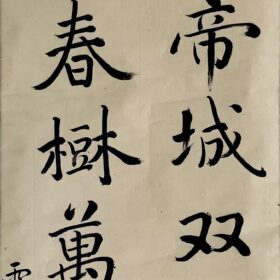 帝城双
春樹萬